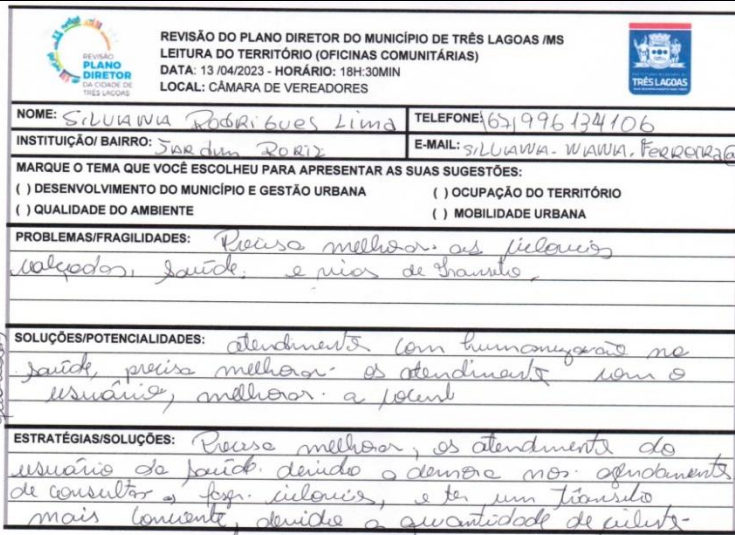 REVISÃO
PLANO
DIRETOR
DA CIDADE DE
TRÊS LAGOAS
REVISÃO DO PLANO DIRETOR DO MUNICÍPIO DE TRÊS LAGOAS /MS
LEITURA DO TERRITÓRIO (OFICINAS COMUNITÁRIAS)
DATA: 13 /04/2023 - HORÁRIO: 18H:30MIN
LOCAL: CÂMARA DE VEREADORES
TRÊS LAGOAS
NOME: SILVANA RODRIGUES Lima TELEFONE: (67) 996134106
INSTITUIÇÃO/ BAIRRO: JARdim RORIZ E-MAIL: SILVANA.WANA.FERREIRA@
MARQUE O TEMA QUE VOCÊ ESCOLHEU PARA APRESENTAR AS SUAS SUGESTÕES:
( ) DESENVOLVIMENTO DO MUNICÍPIO E GESTÃO URBANA ( ) OCUPAÇÃO DO TERRITÓRIO
( ) QUALIDADE DO AMBIENTE ( ) MOBILIDADE URBANA
PROBLEMAS/FRAGILIDADES: Precisa melhorar as ciclovias
calçadas, saúde, e vias de transito.
SOLUÇÕES/POTENCIALIDADES: atendimento com humanização na
saúde, precisa melhorar os atendimento com o
usuário, melhorar a
ESTRATÉGIAS/SOLUÇÕES: Precisa melhorar, os atendimento do
usuário da saúde devido a demora nos agendamento
de consultas, fazer ciclovias, e ter um trânsito
mais devido a quantidade de